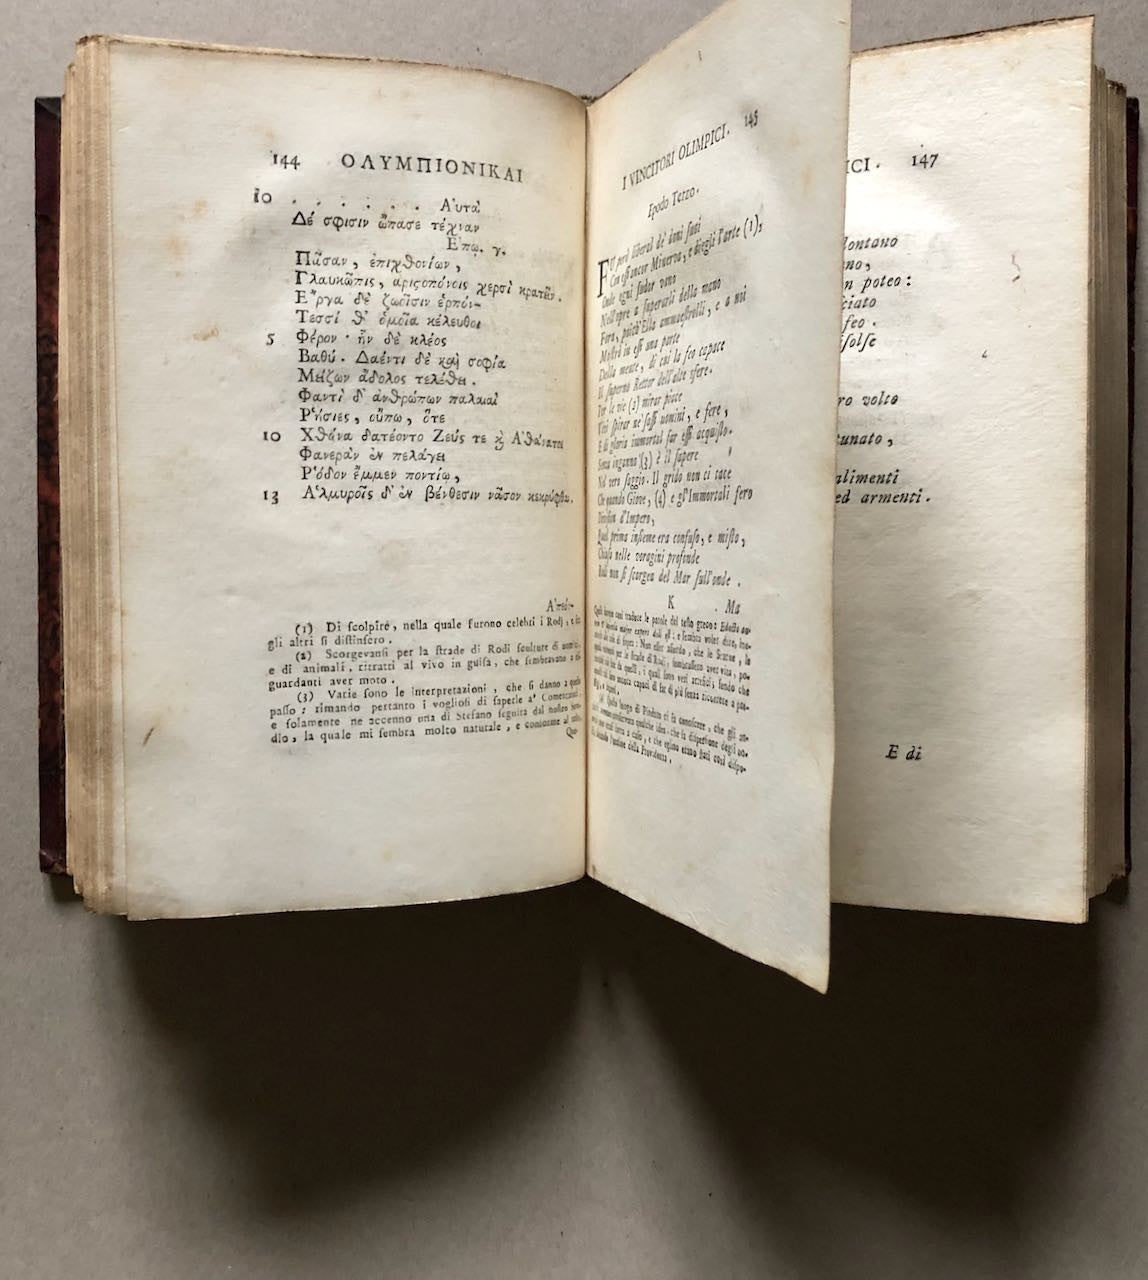 144 ΟΛΥΜΠΙΟΝΙΚΑΙ
10 . . . . . . Αὐτὰ
Δέ σφισιν ὤπασε τέχναν
Επῳ. γ.
Πᾶσαν, ἐπιχθονίων,
Γλαυκῶπις, αριστοπόνοις χερσὶ κρατεῖν.
Ε῎ργα δὲ ζωοῖσιν ἑρπόν-
Τεσσί θ' ὁμοῖα κέλευθοι
5 Φέρον· ἦν δὲ κλέος
Βαθύ. Δαέντι δὲ καὶ σοφία
Μείζων ἄδολος τελέθει.
Φαντὶ δ' ἀνθρώπων παλαιαὶ
Ρ῾ήσιες, οὔπω, ὅτε
10 Χθόνα δατέοντο Ζεύς τε καὶ Α᾽θάνατοι
Φανερὰν ἐν πελάγει
Ρ῾όδον ἔμμεν ποντίῳ,
13 Α῾λμυροῖς δ' ἐν βένθεσιν νᾶσον κεκρύφθαι.
Α᾽πεόν-
(1) Di scolpire, nella quale furono celebri i Rodj, e
gli altri si distinsero.
(2) Scorgevansi per la strade di Rodi sculture di uomini,
e di animali, ritratti al vivo in guisa, che sembravano a
guardanti aver moto.
(3) Varie sono le interpretazioni, che si danno a questo
passo: rimando pertanto i vogliosi di saperle a' Comentatori,
e solamente ne accenno una di Stefano seguita dal nostro
dio, la quale mi sembra molto naturale, e conforme al
Que-
I VINCITORI OLIMPICI. 145
Epodo Terzo.
FU però liberal de' doni suoi
Con essi ancor Minerva, e diegli l'arte (1),
Onde ogni sudor vano
Nell'opre a superarli della mano
Fora, poich'Ella ammaestrolli, e a noi
Mostrò in essi una parte
Della mente, di cui la feo capace
Il superno Rettor dell'alte sfere.
Per le vie (2) mirar piace
Vivi spirar ne' sassi uomini, e fere,
E di gloria immortal far essi acquisto.
Senza inganno (3) è il sapere
Nel vero saggio. Il grido non ci tace
Che quando Giove, (4) e gl'Immortali fero
Division d'Impero,
Qual prima insieme era confuso, e misto,
Chiusa nelle voragini profonde
Rodi non si scorgea del Mar sull'onde.
K Ma
ICI. 147
lontano
no,
n poteo:
ciato
feo.
isolse
ro volto
tunato,
alimenti
ed armenti.
E di